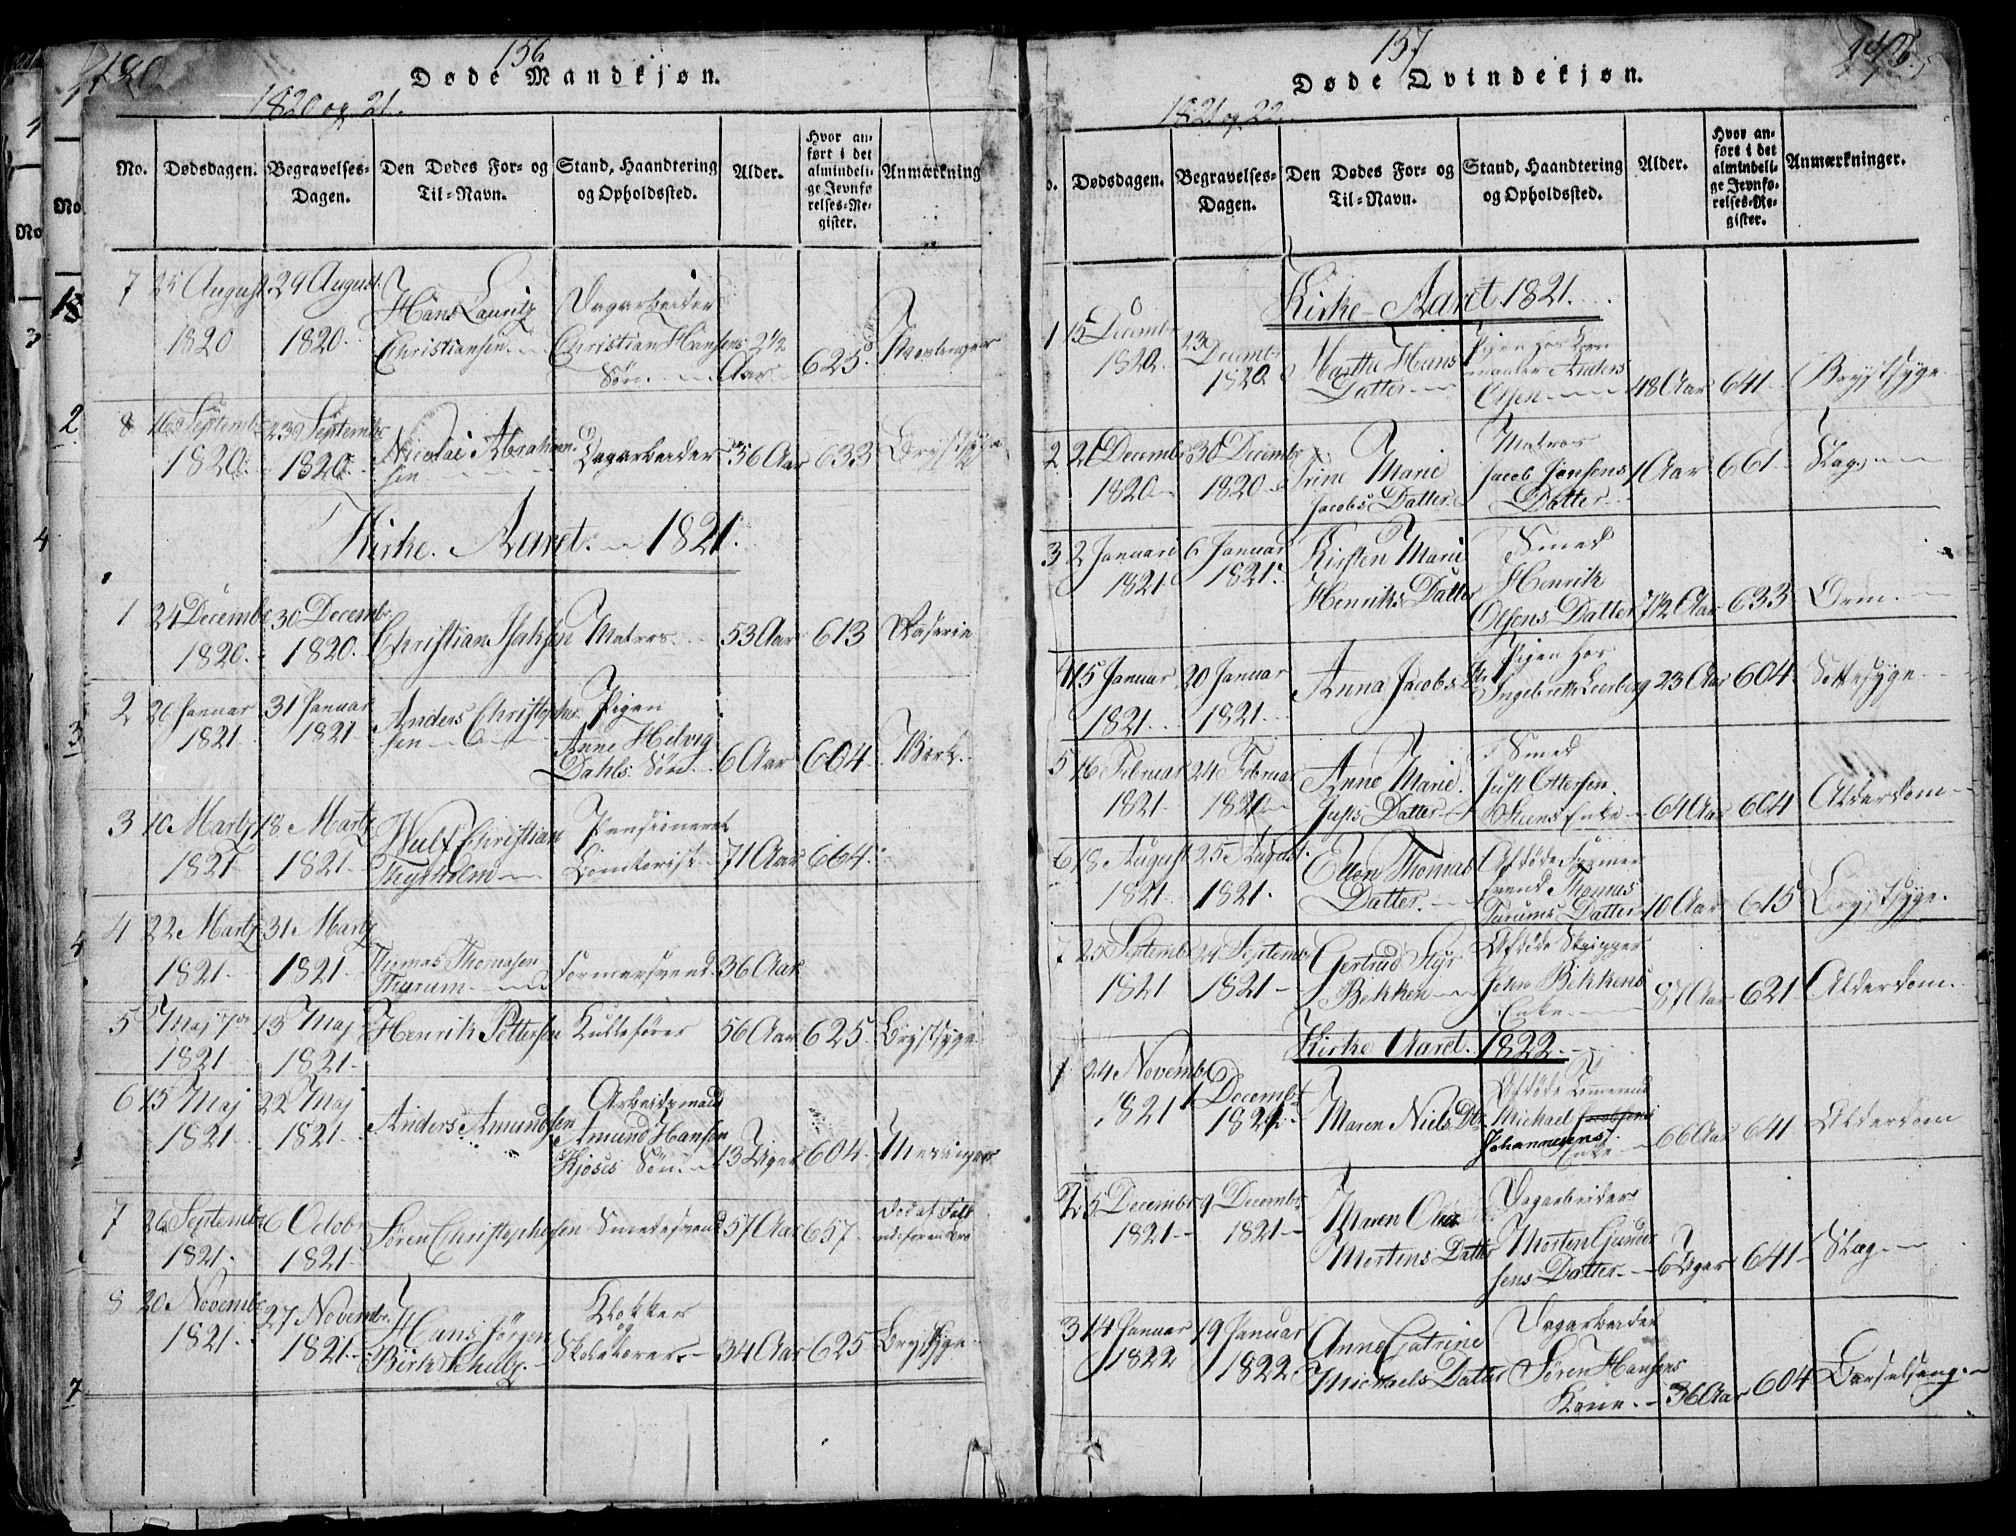 156
Døde Mandkjøn.
1820 og 21.
No. Dødsdagen. Begravelses-Dagen. Den Dødes For- og Til-Navn. Stand, Haandtering og Opholdssted. Alder. Hvor anført i det almindelige Jevnførelses-Register. Anmærkning
7 25 August 1820 29 August 1820. Hans Lauritz Christiansen Dagarbeider Christian Hansens Søn 2 1/2 Aar 625.
8 16 Septembr 1820. 23 Septembr 1820 Nicolai Abrahamsen Dagarbeider 56 Aar 633 Brystsyge
Kirke. Aaret. 1821.
1 24 Decembr 1820. 30 Decembr 1820. Christian Isaksen Matros 53 Aar 613
2 26 Januar 1821 31 Januar 1821 Anders Christophersen Pigen Anne Helvig Dahls Søn 6 Aar 604.
3 10 Martz 1821 18 Martz 1821. Wulf Christian Thyrholm Pensioneret 71 Aar 664.
4 22 Martz 1821 31 Martz 1821. Thomas Thomasen Thyrum Formersvend 36 Aar
5 Maj 1821 13 Maj 1821. Henrik Pettersen 56 Aar 625. Brystsyge
6 15 Maj 1821 22 Maj 1821. Anders Amundsen Arbeidsmand Amund Hansen Kjøses Søn 13 Uger 604
7 26 Septembr 1821. 6 Octobr 1821. Søren Christophersen Smedesvend 57 Aar 657.
8 20 Novembr 1821. 27 Novembr 1821. Hans Jørgen Birk Schultz. Klokker og Skolelærer 34 Aar 625 Brystsyge
157
Døde Qvindekjøn.
1821 og 22.
Dødsdagen. Begravelses-Dagen. Den Dødes For- og Til-Navn. Stand, Haandtering og Opholdssted. Alder. Hvor anført i det almindelige Jevnførelses-Register. Anmærkninger.
Kirke-Aaret 1821.
1 15 Decembr 1820. 23 Decembr 1820 Marthe Hans Datter Pigen hos Anders Olsen 48 Aar 641 Brystsyge
2 21 Decembr 1820 30 Decembr 1820 Trine Marie Jacobs Datter Matros Jacob Jansens Datter 1 Aar 661 Slag
3 2 Januari 1821 6 Januar 1821. Kirsten Marie Henriks Datter Smed Henrik Olsens Datter 7 1/2 Aar 633 Orm.
4 15 Januar 1821. 20 Januar 1821. Anna Jacobs Dtr Pigen hos Ingebreth Leerberg 23 Aar 604.
5 16 Februar 1821 24 Februar Anne Marie Justs Datter Smed Just Ottersen Enke 64 Aar 604 Alderdom
6 18 August 1821 25 August. 1821. Ellen Thomas Datter. Afdøde Formersvend Thomas Tarums Datter 10 Aar 615 Brystsyge.
7 25 Septembr 1821 24 Septembr 1821 Gertrud Styr Bekken Afdøde Skipper John Bekkens Enke. 87 Aar 621 Alderdom.
Kirke Aaret. 1822.
1 24 Novembr 1821 1 Decembr 1821. Maren Niels Dtr Afdøde Michael Johannesens Enke 66 Aar 641 Alderdom
2 5 Decembr 1821 9 Decembr 1821 Maren Mortens Datter Dagarbeider Morten Gundersens Datter 6 Uger 641 Slag.
3 14 Januar 1822 19 Januar 1822. Anne Catrine Michaels Datter Dagarbeider Søren Hansens Kone. 36 Aar 604 Barselseng.